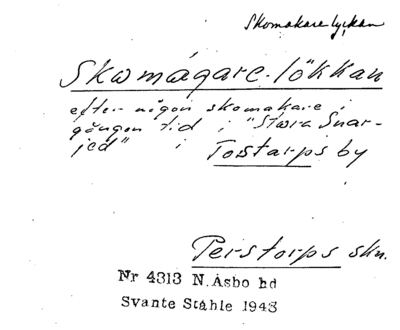 Skomakarelyckan
Skomågare-lökkan
efter någon skomakare i
gången tid i "Stora Snar-
jed" i Tostarps by
Perstorps skn.
Nr 4313 N. Åsbo hd
Svante Ståhle 1943